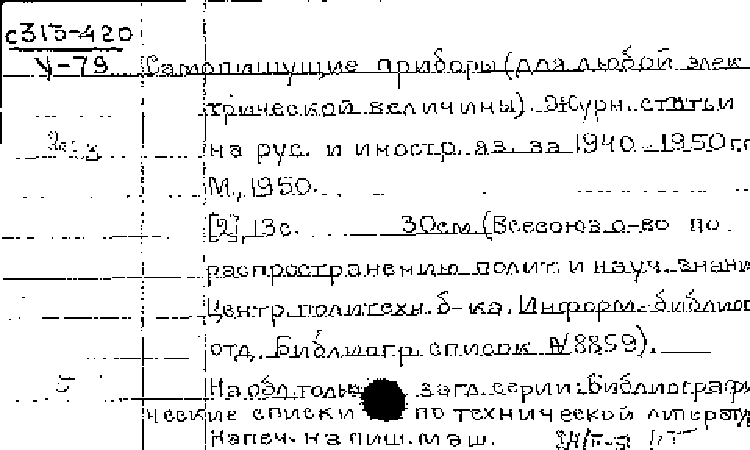 с315-420
V-79
Самопишущие приборы (для любой элек
трической величины). Журн. статьи
на рус. и иностр. яз. за 1940-1950 гг
М., 1950.
[2], 13 с. 30 см. (Всесоюз о-во по
распространению полит. и науч. знани
Центр. политехн. б-ка. Информ.-библиог
отд. Библиогр. список №8859).
5 На обл. только загл. серии: Библиографи
ческие списки по технической литератур
Напеч. на пиш. маш.